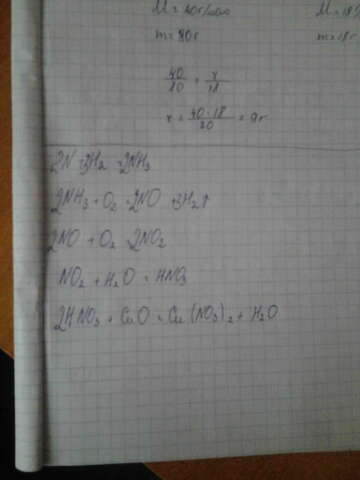 M = 80г/моль M = 18
m = 80г m = 18г
40/80 = x/18
x = 40·18/80 = 9г
2N + 3H₂ = 2NH₃
2NH₃ + O₂ = 2NO + 3H₂↑
2NO + O₂ = 2NO₂
NO₂ + H₂O = HNO₃
2HNO₃ + CuO = Cu(NO₃)₂ + H₂O